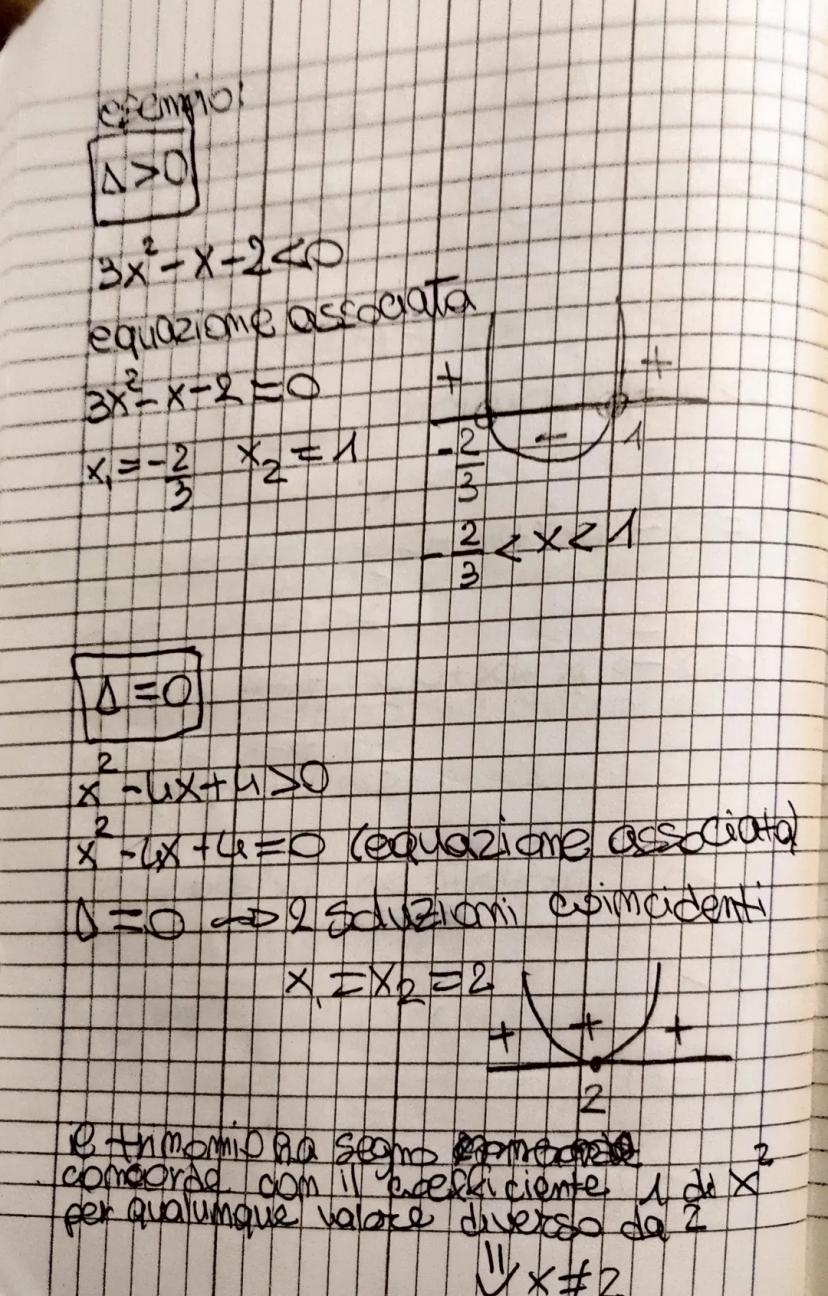 esempio:
Δ>0
3x²-x-2<0
equazione associata
3x²-x-2=0
x₁=-2/3 x₂=1
+ - +
-2/3 1
-2/3<x<1
Δ=0
x²-4x+4>0
x²-4x+4=0 (equazione associata)
Δ=0 → 2 soluzioni coincidenti
x₁=x₂=2
+ + +
2
il trinomio ha segno
concorde con il coefficiente 1 di x²
per qualunque valore diverso da 2
⇓ x≠2